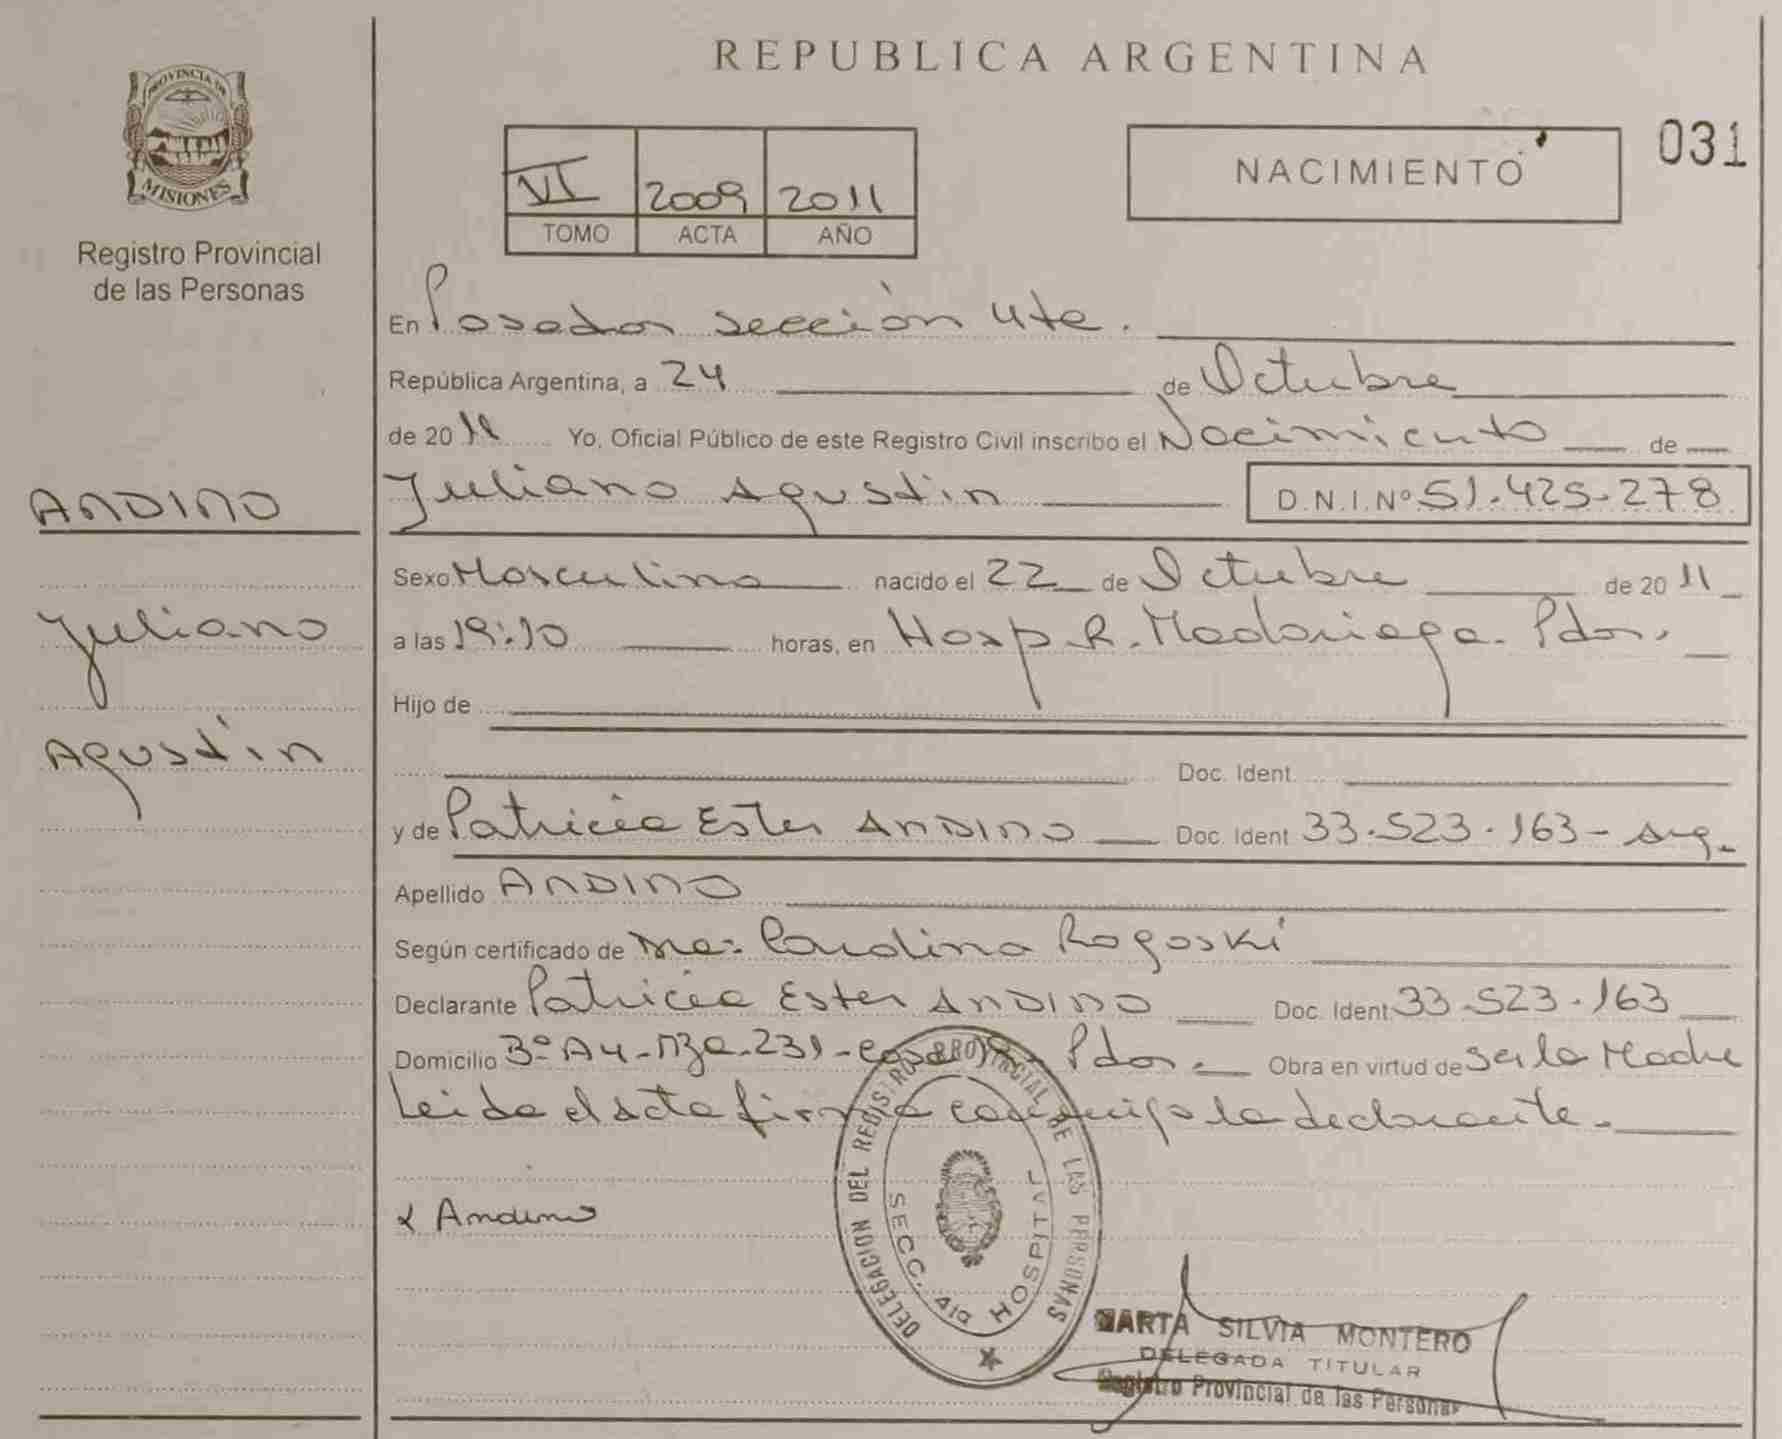 REPUBLICA ARGENTINA
PROVINCIA DE
MISIONES
Registro Provincial
de las Personas
VI 2009 2011
TOMO ACTA AÑO
NACIMIENTO
031
En Posadas sección 4ta.
República Argentina, a 24 de Octubre
de 2011 Yo, Oficial Público de este Registro Civil inscribo el Nacimiento de
ANDINO
Juliano Agustín
Juliano Agustin D.N.I.Nº 51.425.278
Sexo Masculino nacido el 22 de Octubre de 2011
a las 19:10 horas, en Hosp. R. Madariaga. Pdas.
Hijo de
Doc. Ident.
y de Patricia Ester ANDINO Doc. Ident 33.523.163 - Arg.
Apellido ANDINO
Según certificado de Rogoski
Declarante Patricia Ester ANDINO Doc. Ident 33.523.163
Domicilio 3º A4 - Mza. 231 - casa Pdas. Obra en virtud de ser la Madre
Leida el acta firma conmigo la declarante.
Andino
DELEGACION DEL REGISTRO PROVINCIAL DE LAS PERSONAS
SECC. 4ta HOSPITAL
MARTA SILVIA MONTERO
DELEGADA TITULAR
Registro Provincial de las Personas